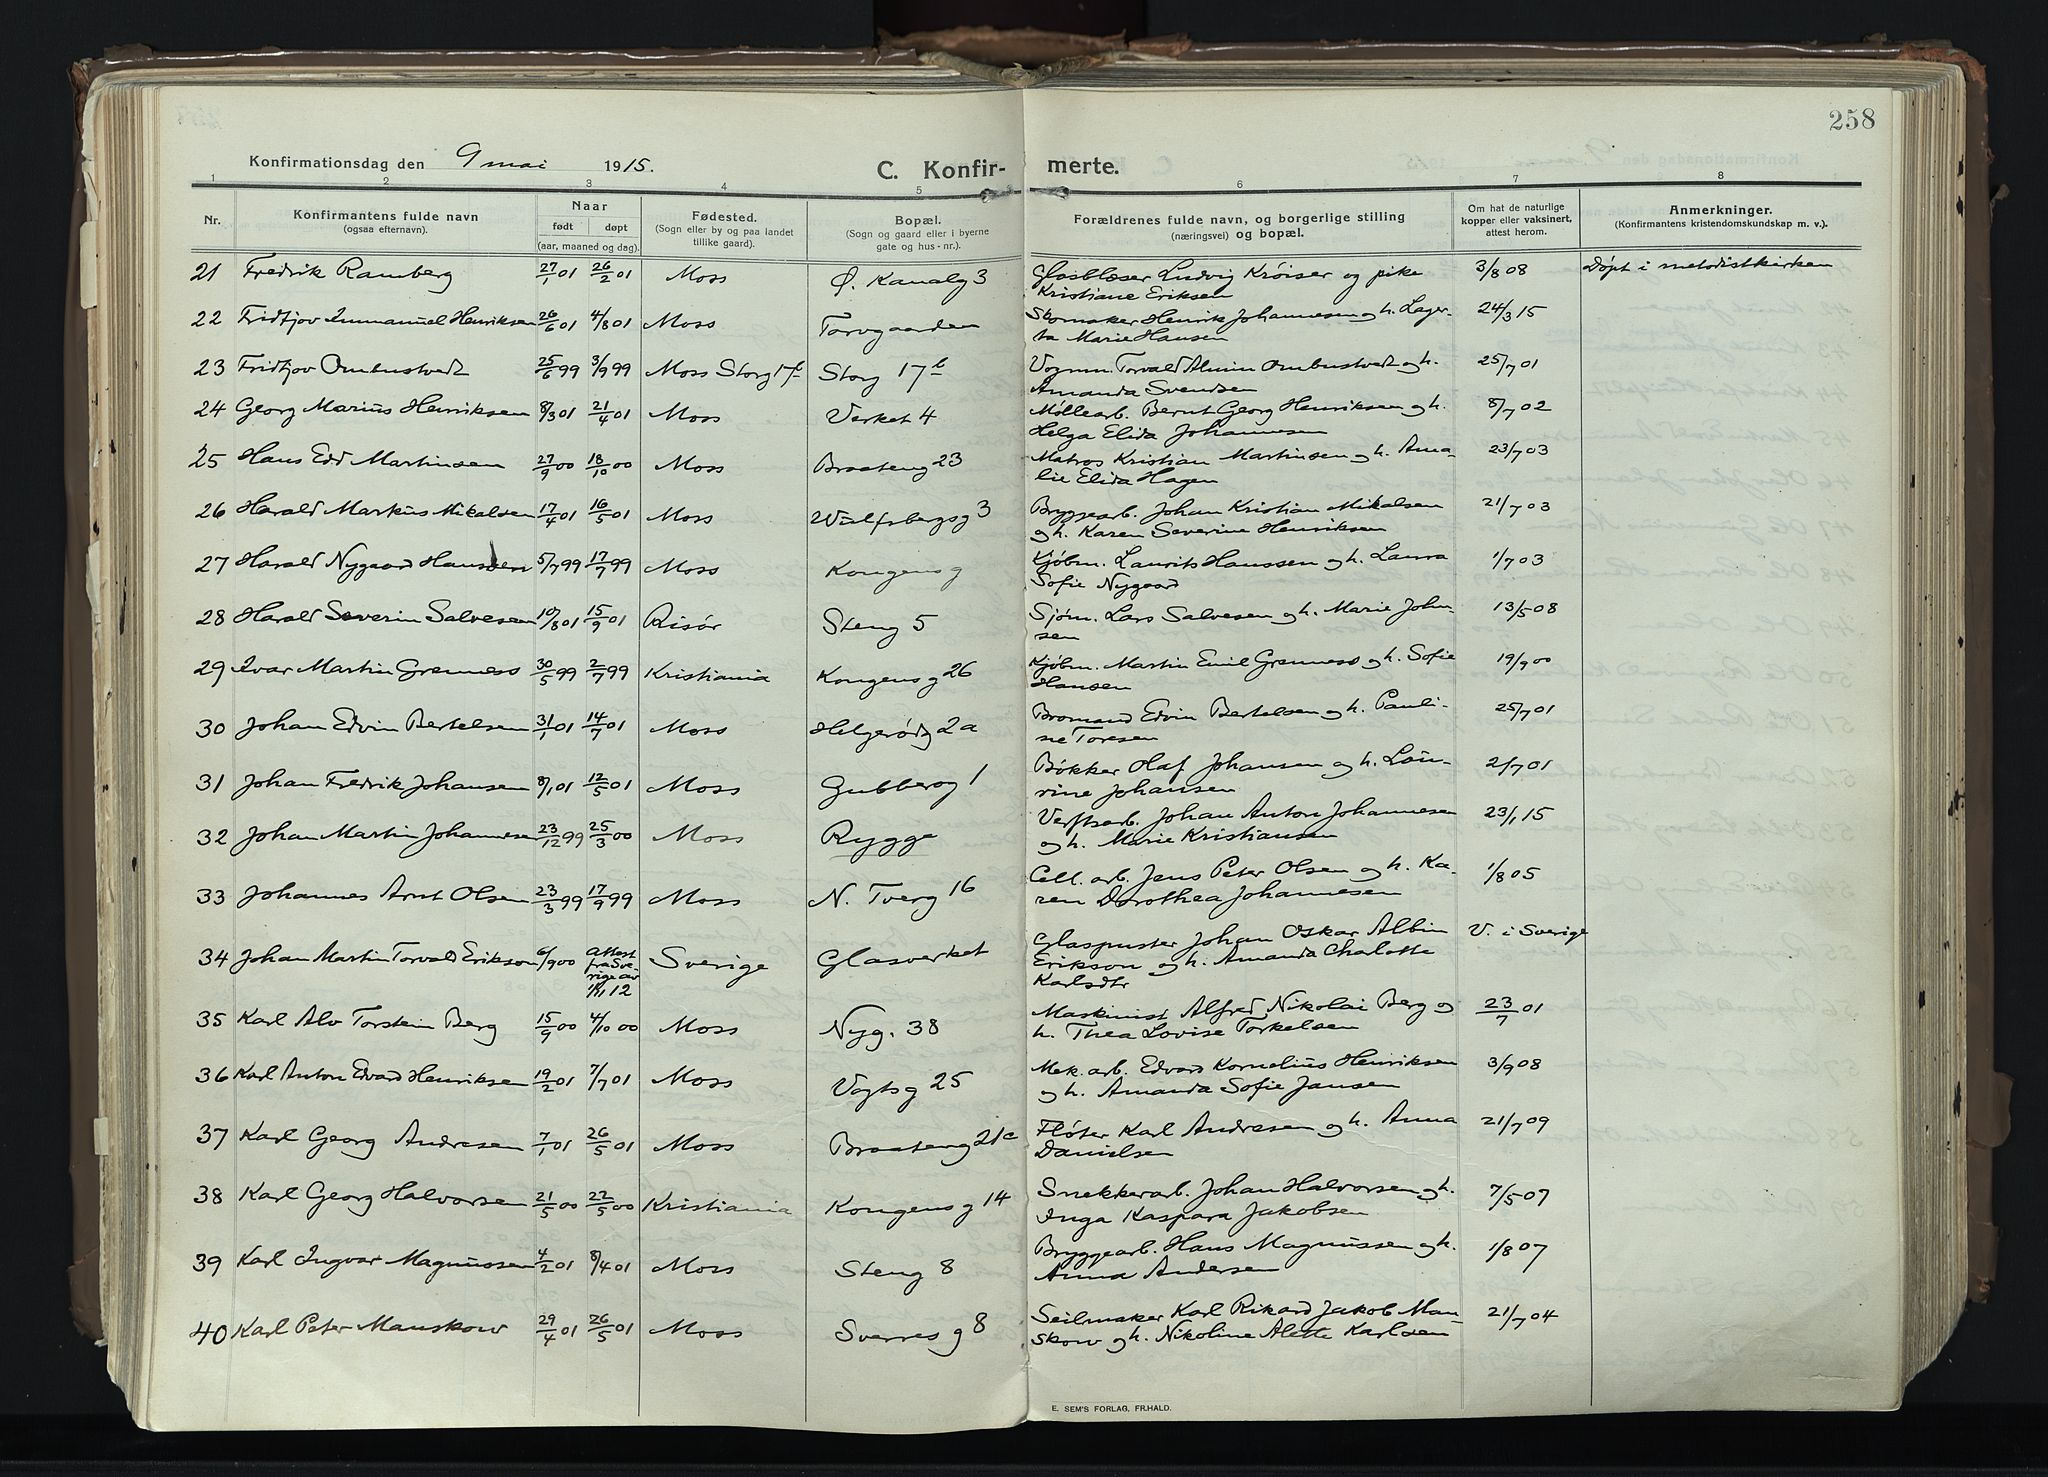 258
Konfirmationsdag den 9 mai 1915.
C. Konfir- merte.
1 2 3 4 5 6 7 8
Nr. Konfirmantens fulde navn (ogsaa efternavn). Naar født døpt (aar, maaned og dag). Fødested. (Sogn eller by og paa landet tillike gaard). Bopæl. (Sogn og gaard eller i byerne gate og hus-nr.). Forældrenes fulde navn, og borgerlige stilling (næringsvei) og bopæl. Om hat de naturlige kopper eller vaksinert, attest herom. Anmerkninger. (Konfirmantens kristendomskundskap m. v.).
21 Fredrik Ramberg 27/1 01 26/2 01 Moss Ø. Kanalg 3 Glasblæser Ludvig Krøiser og pike 3/8 08 Døpt i metodistkirken
Kristiane Eriksen
22 Fridtjov Immanuel Henriksen 26/6 01 4/8 01 Moss Torvgaarden Skomaker Henrik Johannesen og h. Lager- 24/3 15
ta Marie Hansen
23 Fridtjov Ombustvedt 25/6 99 3/9 99 Moss Storg 17b Storg 17b Vognm. Torvald Alminn Ombustvedt og h. 25/7 01
Amanda Svendsen
24 Georg Marius Henriksen 8/3 01 21/4 01 Moss Verket 4 Møllearb. Bernt Georg Henriksen og h. 8/7 02
Helga Elida Johannesen
25 Hans Edv Martinsen 27/9 00 18/10 00 Moss Braateng 23 Matros Kristian Martinsen og h. Ama- 23/7 03
lie Elida Hagen
26 Harald Markus Mikalsen 17/4 01 16/5 01 Moss Wulfsbergsg 3 Bryggearb. Johan Kristian Mikalsen 21/7 03
og h. Karen Severine Henriksen
27 Harald Nygaard Hanssen 5/7 99 17/7 99 Moss Kongens g Kjøbm. Laurits Hanssen og h. Laura 1/7 03
Sofie Nygaard
28 Harald Severin Salvesen 10/8 01 15/9 01 Risør Steng 5 Sjøm. Lars Salvesen og h. Marie John- 13/5 08
sen
29 Ivar Martin Grenness 30/5 99 2/7 99 Kristiania Kongens g 26 Kjøbm. Martin Emil Grenness og h. Sofie 19/9 00
Hansen
30 Johan Edvin Bertelsen 31/1 01 14/7 01 Moss Helgerødg 2a Bromand Edvin Bertelsen og h. Pauli- 25/7 01
ne Toresen
31 Johan Fredrik Johansen 8/1 01 12/5 01 Moss Gubberog 1 Bøkker Olaf Johansen og h. Lau- 2/7 01
rine Johansen
32 Johan Martin Johannesen 23/12 99 25/3 00 Moss Rygge Verftsarb. Johan Anton Johannesen 23/1 15
og h. Marie Kristiansen
33 Johannes Arnt Olsen 23/3 99 17/9 99 Moss N. Tverg 16 Cell. arb. Jens Peter Olsen og h. Ka- 1/8 05
ren Dorothea Johannesen
34 Johan Martin Torvald Erikson 6/9 00 Attest fra Sve- rige av 1/11 12 Sverige Glasverket Glaspuster Johan Oskar Albin V. i Sverige
Erikson og h. Amanda Charlotte
Karlsdtr
35 Karl Alv Torstein Berg 15/9 00 4/10 00 Moss Nyg. 38 Maskinist Alfred Nikolai Berg og 23/7 01
h. Thea Lovise Torkelsen
36 Karl Anton Edvard Henriksen 19/2 01 7/7 01 Moss Vogtsg 25 Mek. arb. Edvard Kornelius Henriksen 3/9 08
og h. Amanda Sofie Jansen
37 Karl Georg Andresen 7/1 01 26/5 01 Moss Braateng 21c Fløter Karl Andresen og h. Anna 21/7 09
Danielsen
38 Karl Georg Halvorsen 21/5 00 22/5 00 Kristiania Kongens g 14 Snekkerarb. Johan Halvorsen og h. 7/5 07
Inga Kaspara Jakobsen
39 Karl Ingvar Magnussen 4/2 01 8/4 01 Moss Steng 8 Bryggearb. Hans Magnussen og h. 1/8 07
Anna Andersen
40 Karl Peter Manskow 29/4 01 26/5 01 Moss Sverres g 8 Seilmaker Karl Rikard Jakob Man- 21/7 04
skow og h. Nikoline Alette Karlsen
E. SEM'S FORLAG, FR.HALD.